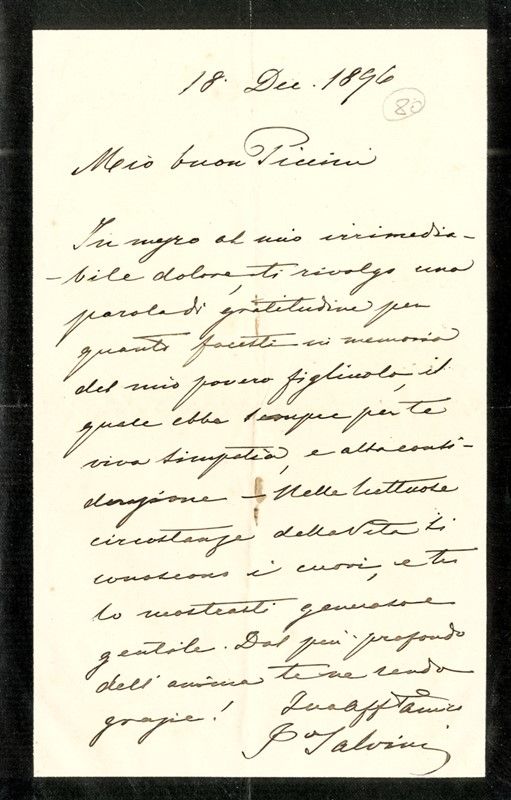 18. Dec. 1896
80
Mio buon Piccini
In mezzo al mio irrimedia-
-bile dolore, ti rivolgo una
parola di gratitudine per
quanto facesti in memoria
del mio povero figliuolo, il
quale ebbe sempre per te
viva simpatia, e alta consi-
derazione - Nelle luttuose
circostanze della Vita si
conoscono i cuori, e tu
lo mostrasti generoso e
gentile. Dal più profondo
dell'anima te ne rendo
grazie! Tuo Aff.mo Amico
Salvini